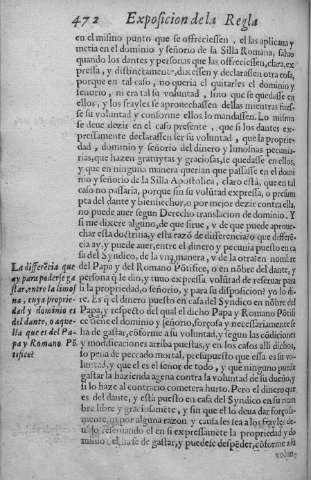 472 Exposicion de la Regla
en el mismo punto que se offreciessen, el las aplica y
metia en el dominio y señorio de la Silla Romana, saluo
quando los dantes y personas que las offreciessen, clara, ex
pressa, y distinctamente dixessen y declarassen otra cosa,
porque en tal caso, no queria el quitarles el dominio y
señorio, ni era tal su voluntad, sino que se quedasse en
ellos, y los frayles se aprouechassen dellas mientras fues-
se su voluntad y conforme ellos lo mandassen. Lo mismo
se deue dezir en el caso presente, que si los dantes ex-
pressamente declarassen ser su voluntad, que la proprie-
dad, dominio y señorio del dinero y limosnas pecunia-
rias, que hazen gratuytas y graciosas, le quedasse en ellos,
y que en ninguna manera querian que passasse en el domi
nio y señorio de la Silla Apostolica, claro està, que en tal
caso no passaria, porque sin su volūtad expressa, o presum
pta del dante y bienhechor, o por mejor dezir contra ella,
no puede auer segun Derecho translacion de dominio. Y
si me dixere alguno, de que sirue, y de que puede aproue-
char esta doctrina, y esta razō de differencia? o que differē-
cia ay, y puede auer, entre el dinero y pecunia puesto en ca
sa del Syndico, de la vna manera, y de la otra? en nombre
del Papa y del Romano Pōtifice, o en nōbre del dante, y
persona q̃ le dio, y tuuo expressa volūtad de reseruar para
si la propriedad, o señorio, y para su disposicion? yo lo di-
re. Es q̃ el dinero puesto en casa del Syndico en nōbre del
Papa, y respecto del qual el dicho Papa y Romano Pōtifi
ce tiene el dominio y señorio, forçosa y necessariamente se
ha de gastar, cōforme a su voluntad, y segun las cōdiciones
y modificaciones arriba puestas, y en los casos alli dichos,
so pena de peccado mortal, presupuesto que essa es su vo-
luntad, y que el es el señor de todo, y que ninguno puede
gastar la hazienda agena contra la voluntad de su dueño, y
si lo haze al contrario cometera hurto. Pero el dinero que
es del dante, y està puesto en casa del Syndico en su nom
bre libre y graciosamente, y sin que el lo deua dar forçosa-
mente, ni por alguna razon y causa les sea a los frayles de-
uido, reseruando el en si expressamēte la propriedad y do
minio, el ha se de gastar, y puedese despēder, cōforme a la
volun-
La differēcia que
ay para poderse ga
star, entre la limos
na, cuya proprie-
dad y dominio es
del dante, o aque-
lla que es del Pa-
pa y Romano Pō
tifice?